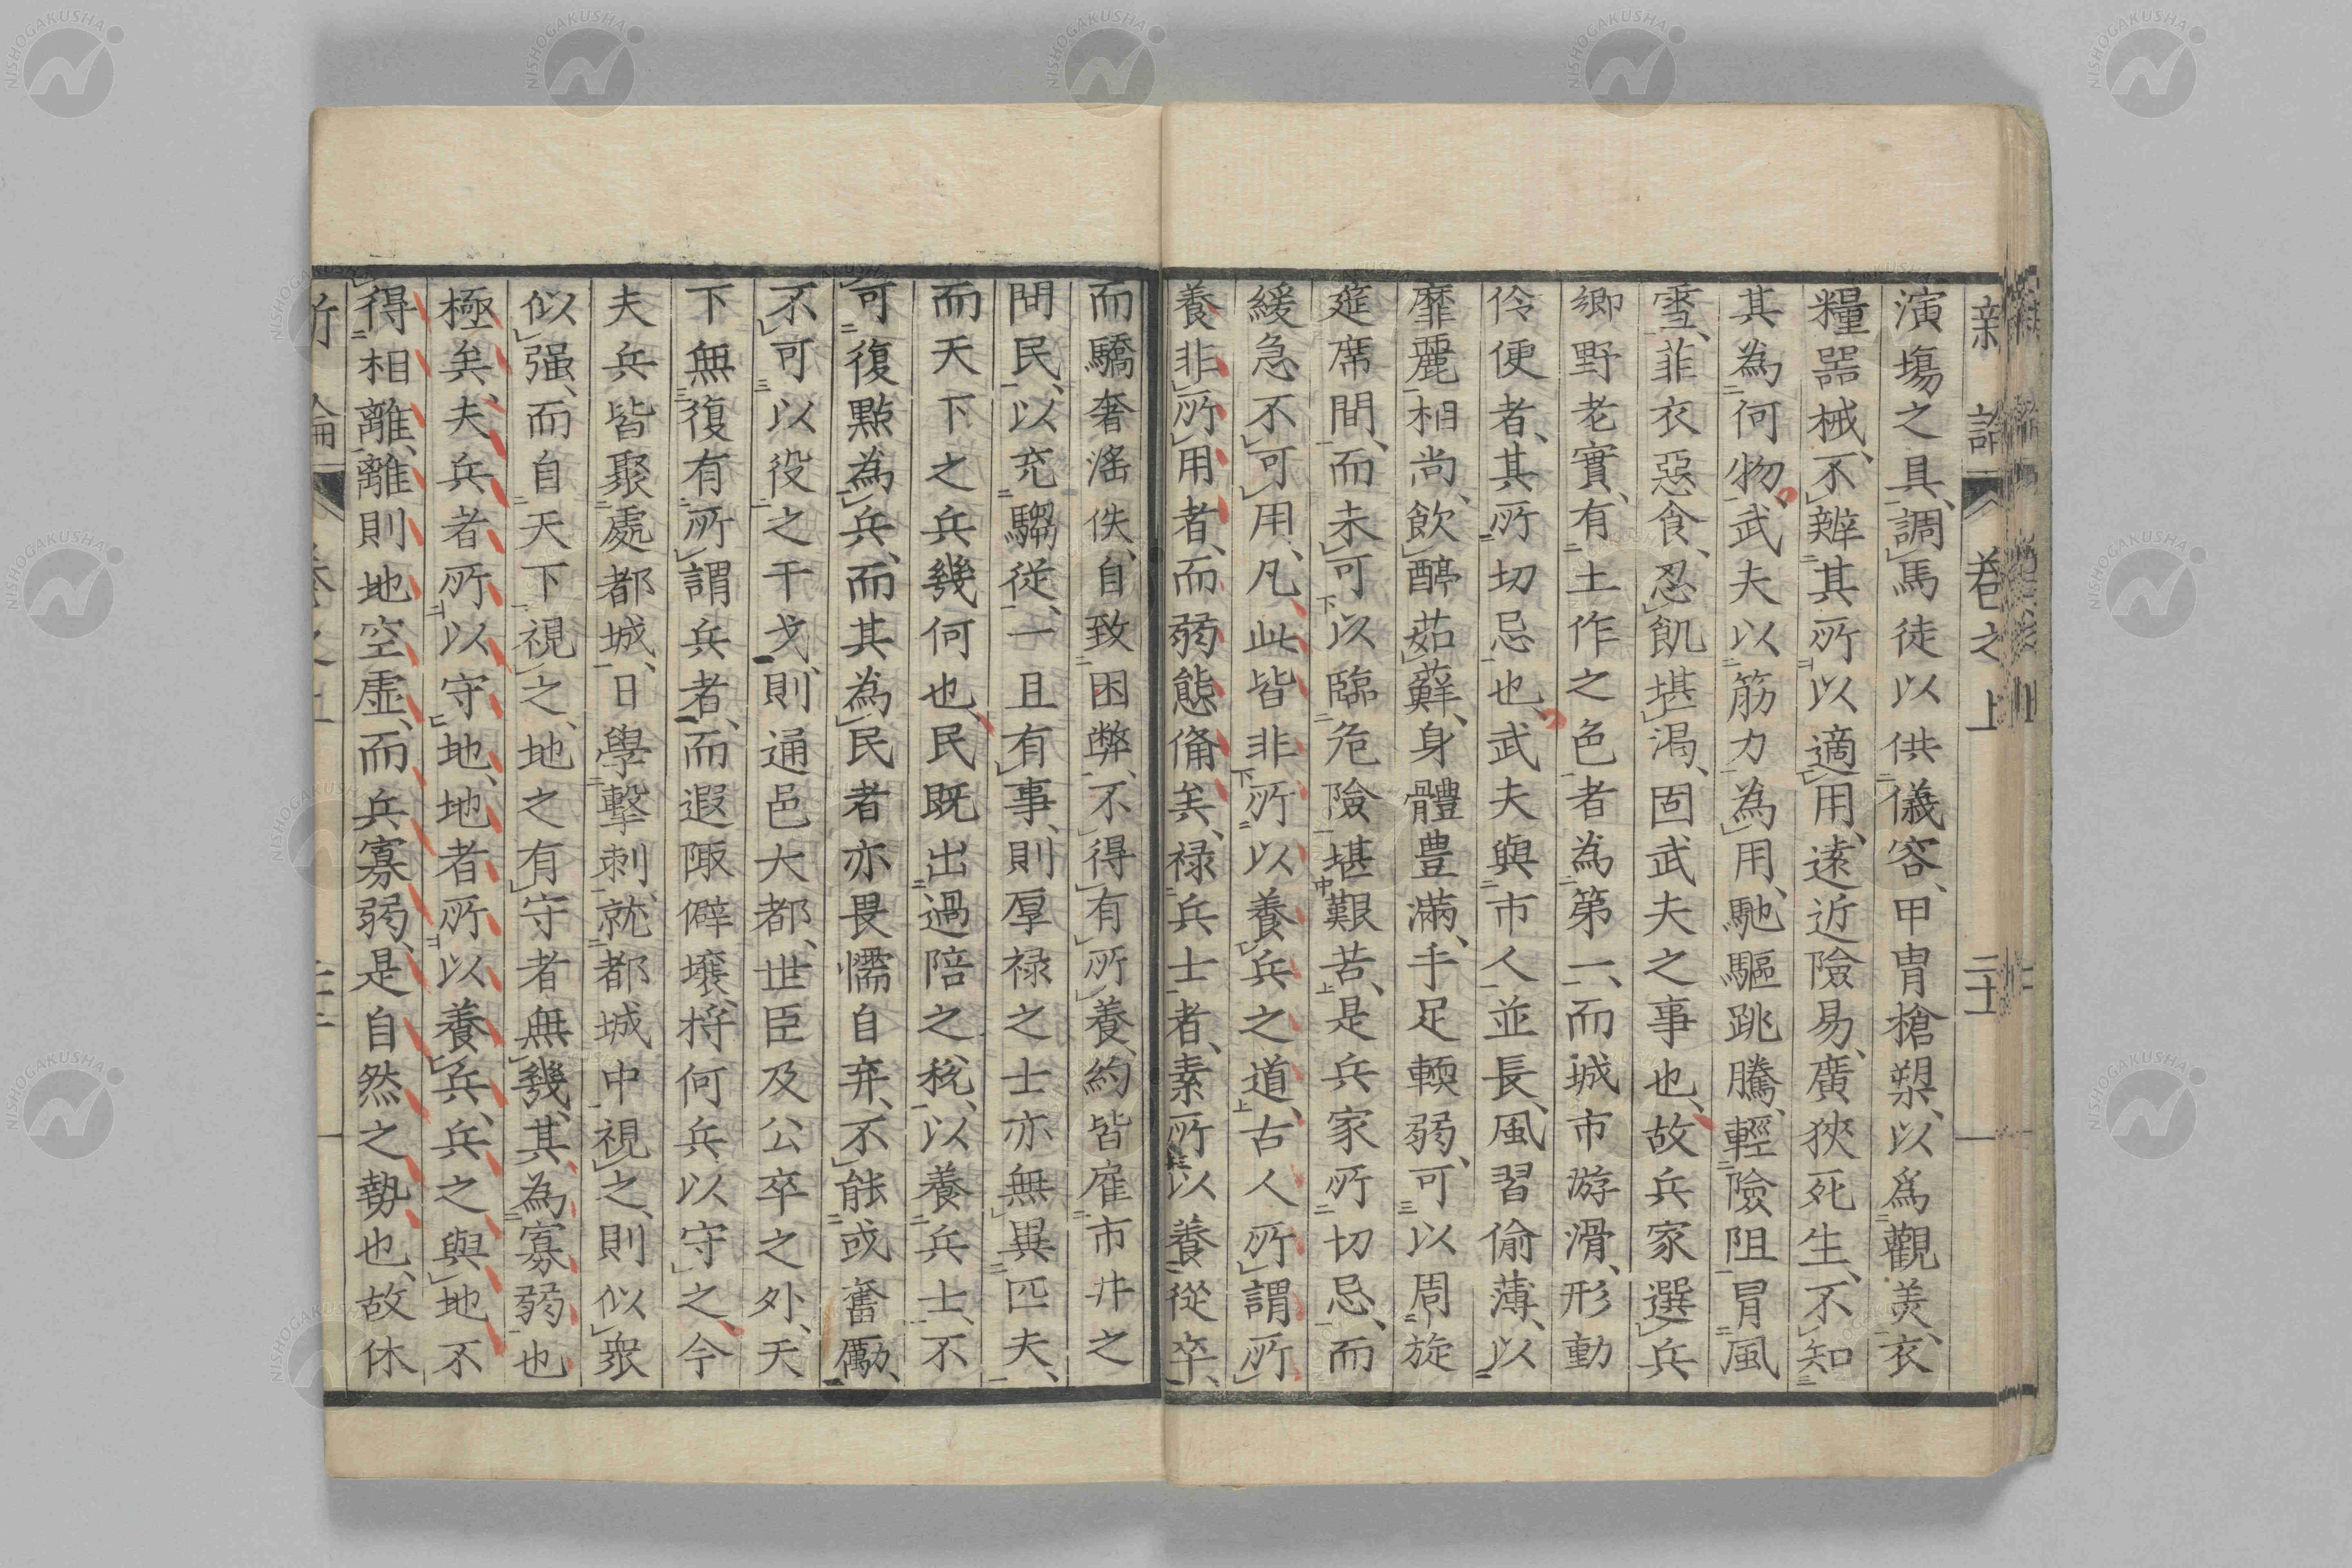 新論 卷之上 二十一
演塲之具、調馬徒以供儀容、甲冑槍槊、以爲觀美、衣
糧器械、不辨其所以適用、遠近險易、廣狹死生、不知
其為何物、武夫以筋力為用、馳驅跳騰、輕險阻冒風
雪、菲衣惡食、忍飢堪渴、固武夫之事也、故兵家選兵
鄉野老實、有土作之色者為第一、而城市游滑、形動
伶便者、其所切忌也、武夫與市人並長、風習偷薄、以
靡麗相尚、飲醇茹蘚、身體豊滿、手足輭弱、可以周旋
筵席間、而未可以臨危險堪艱苦、是兵家所切忌、而
緩急不可用、凡此皆非所以養兵之道、古人所謂所
養非所用者、而弱態俻矣、禄兵士者、素所以養從卒、
而驕奢滛佚、自致困弊、不得有所養、約皆雇市井之
間民、以充騶從、一旦有事、則厚禄之士亦無異匹夫、
而天下之兵幾何也、民既出過陪之稅、以養兵士、不
可復點為兵、而其為民者亦畏懦自弃、不能或奮勵、
不可以役之干戈、則通邑大都、世臣及公卒之外、天
下無復有所謂兵者、而遐陬僻壤、将何兵以守之、今
夫兵皆聚處都城、日學擊刺、就都城中視之、則似衆
似强、而自天下視之、地之有守者無幾、其為寡弱也
極矣、夫兵者所以守地、地者所以養兵、兵之與地不
得相離、離則地空虛、而兵寡弱、是自然之勢也、故休